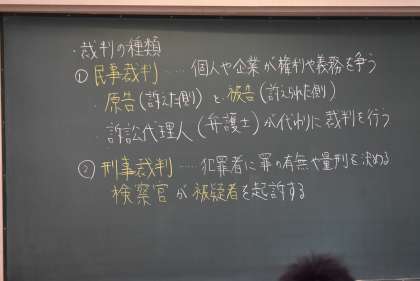 ・裁判の種類
① 民事裁判 ‥‥ 個人や企業が権利や義務を争う
・原告(訴えた側)と被告(訴えられた側)
・訴訟代理人(弁護士)が代わりに裁判を行う
② 刑事裁判 ‥‥ 犯罪者に罪の有無や量刑を決める
検察官が被疑者を起訴する